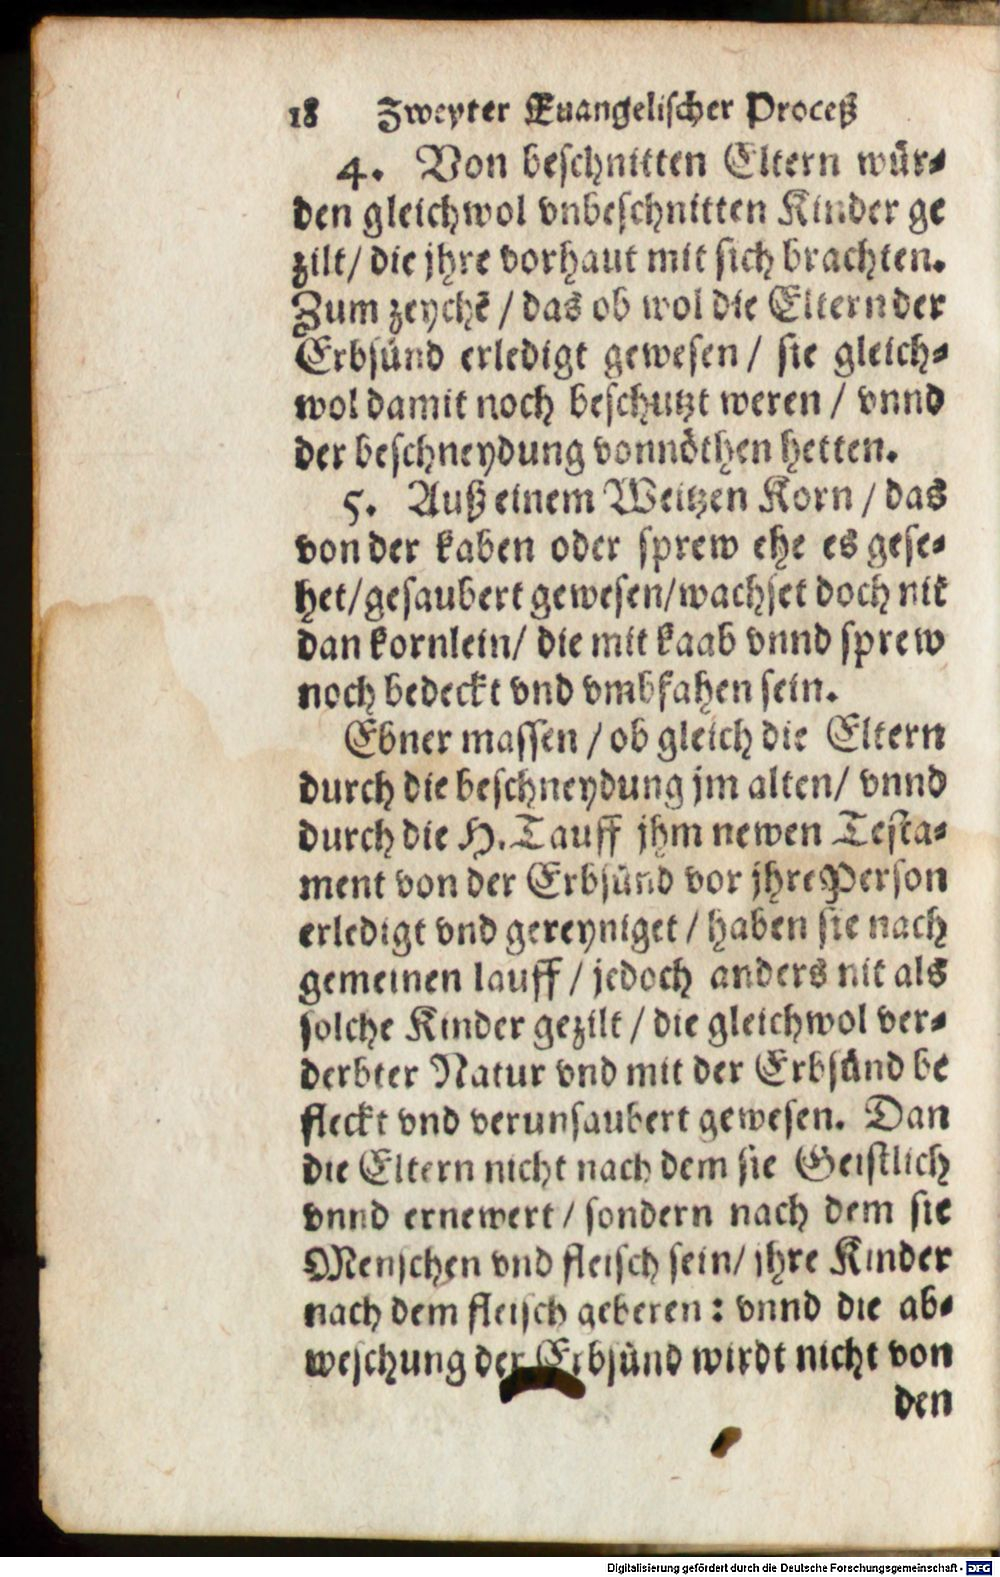 18 Zweyter Euangelischer Proceß
4. Von beschnitten Eltern wür-
den gleichwol vnbeschnitten Kinder ge
zilt/ die jhre vorhaut mit sich brachten.
Zum zeychē / das ob wol die Eltern der
Erbsünd erledigt gewesen / sie gleich-
wol damit noch beschutzt weren / vnnd
der beschneydung vonnöthen hetten.
5. Auß einem Weitzen Korn / das
von der kaben oder sprew ehe es gese-
het/gesaubert gewesen/wachset doch nit
dan kornlein/ die mit kaab vnnd sprew
noch bedeckt vnd vmbfahen sein.
Ebner massen / ob gleich die Eltern
durch die beschneydung jm alten/ vnnd
durch die H. Tauff jhm newen Testa-
ment von der Erbsünd vor jhre Person
erledigt vnd gereyniget / haben sie nach
gemeinen lauff / jedoch anders nit als
solche Kinder gezilt / die gleichwol ver-
derbter Natur vnd mit der Erbsünd be
fleckt vnd verunsaubert gewesen. Dan
die Eltern nicht nach dem sie Geistlich
vnnd ernewert / sondern nach dem sie
Menschen vnd fleisch sein/ jhre Kinder
nach dem fleisch geberen : vnnd die ab-
weschung der Erbsünd wirdt nicht von
den
Digitalisierung gefördert durch die Deutsche Forschungsgemeinschaft - DFG